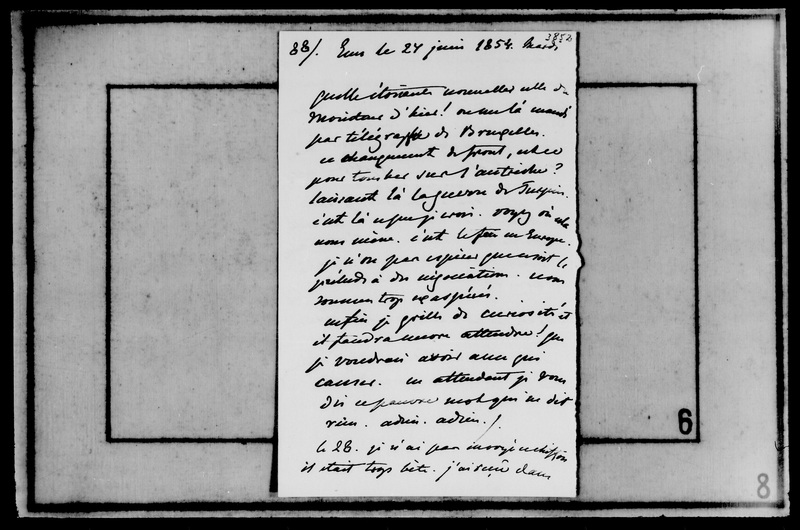 3852
88/. Ems le 27 juin 1854. Mardi
quelle étonnante nouvelle celle du
Moniteur d'hier! on me l'a mandé
par télégraphe de Bruxelles.
ce changement de front, est ce
pour tomber sur l'autriche?
laissant là la guerre de Turquie.
c'est là ce que je crois. voyez où cela
nous mène. c'est le feu en Europe.
je n'ose pas espérer que ce soit le
prélude à des négociations. nous
sommes trop exaspérés.
enfin je grille de curiosité et
il faudra encore attendre! que
je voudrais avoir avec qui
causer. en attendant je vous
dis ce pauvre mot qui ne dit
rien. adieu. adieu. /
le 28. je n'ai pas envoyé ce chiffon
il était trop bête. j'ai reçu dans
6
8